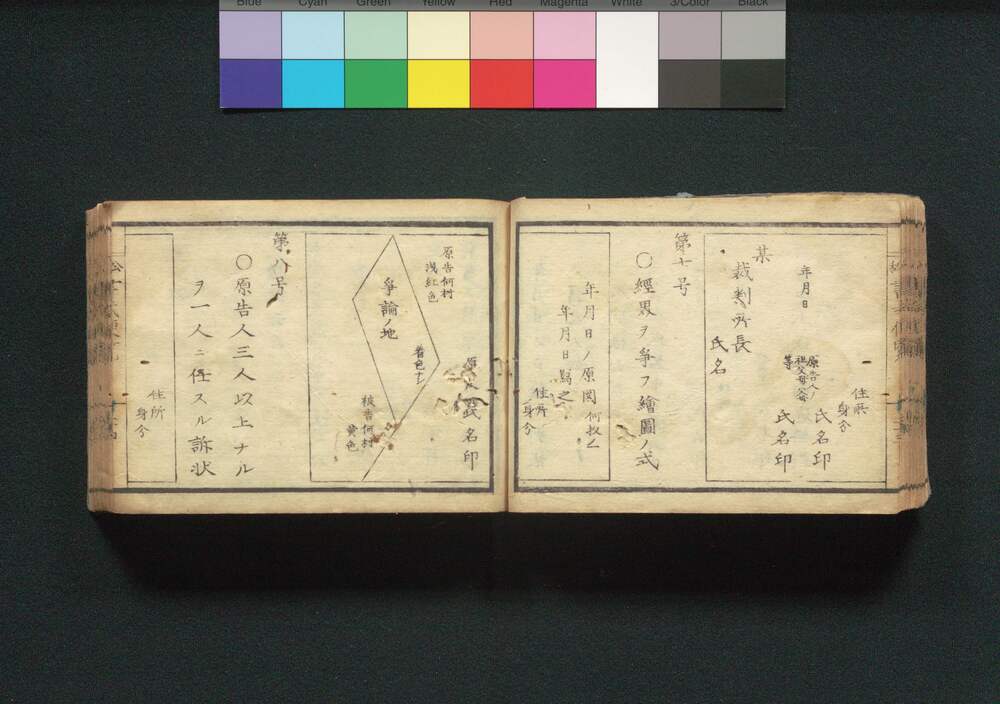 Blue Cyan Green Yellow Red Magenta White 3/Color Black
住所
身分
氏名印
原告人ノ
祖父母父母
等
氏名印
年月日
某
裁判所長
氏名
第七号
○經界ヲ爭フ繪圖ノ式
年月日ノ原図何枚ノ
年月日寫之
住所
身分
氏名印
原告何村
浅紅色
爭論ノ地
着色ナシ
被告何村
黄色
第八号
○原告人三人以上ナル
ヲ一人ニ任スル訴状
住所
身分